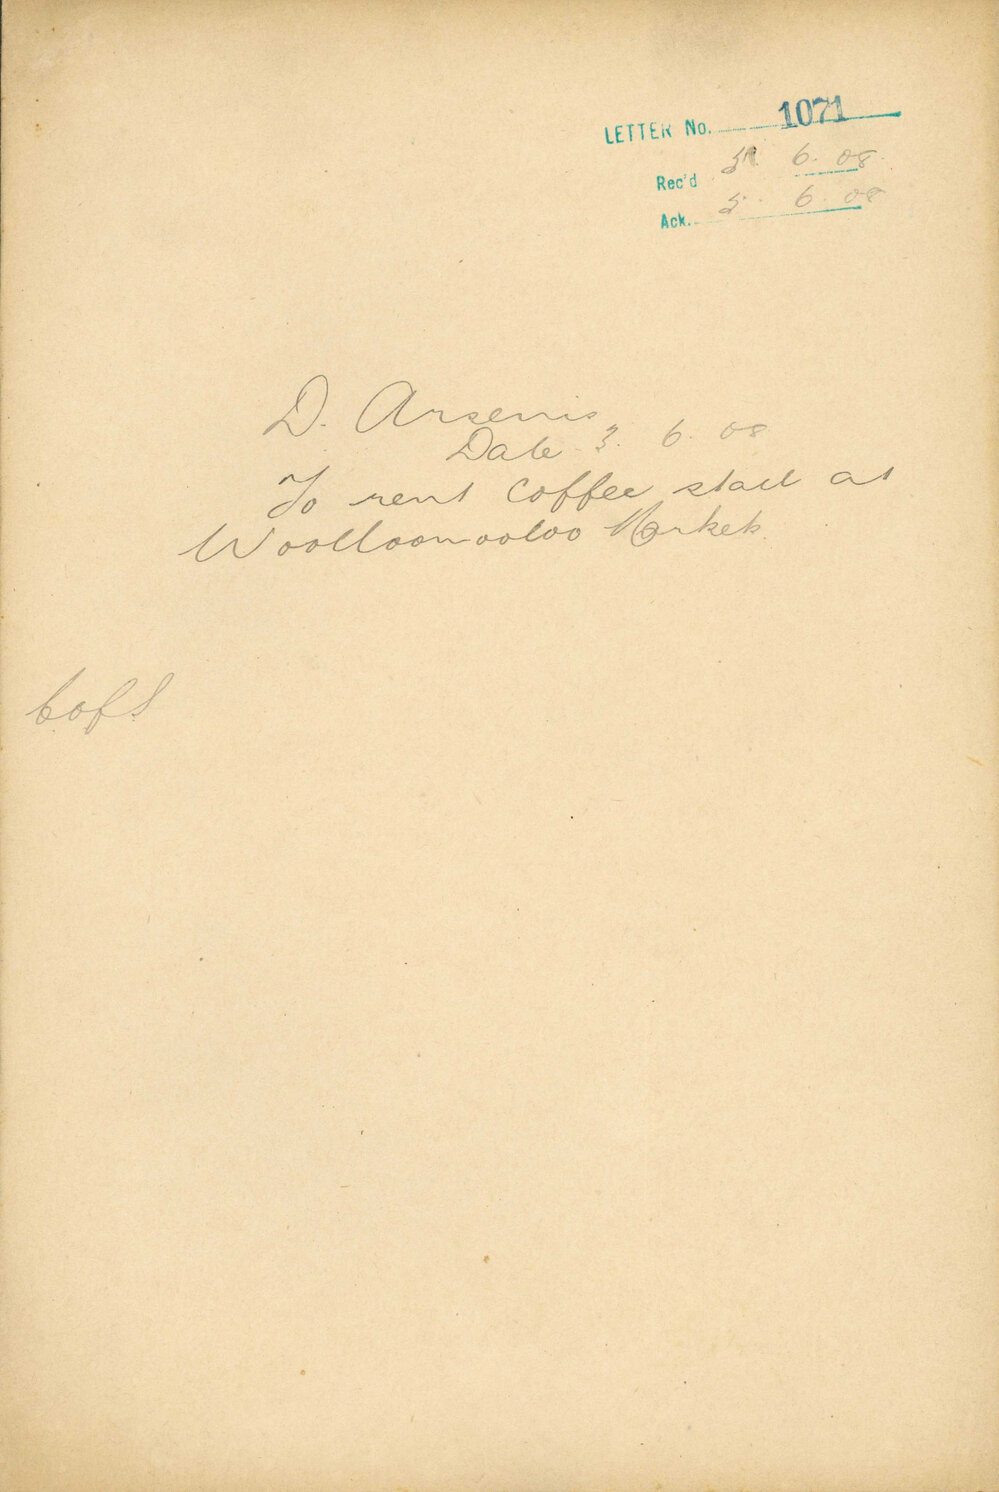 LETTER No. 1071
Rec'd 5. 6. 08.
Ack. 5. 6. 08
D. Arsenis
Date 3. 6. 08
To rent Coffee stall at
Woolloomooloo Markets
C of S